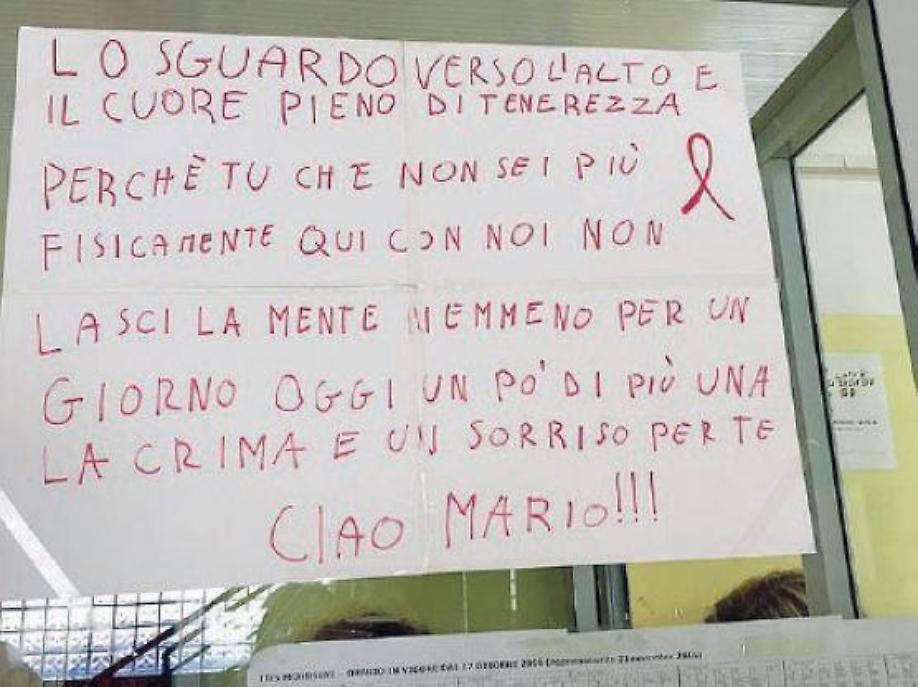 LO SGUARDO VERSO L'ALTO E
IL CUORE PIENO DI TENEREZZA
PERCHÈ TU CHE NON SEI PIÙ
FISICAMENTE QUI CON NOI NON
LASCI LA MENTE NEMMENO PER UN
GIORNO OGGI UN PO' DI PIÙ UNA
LACRIMA E UN SORRISO PER TE
CIAO MARIO!!!
ORARIO IN VIGORE DAL 17 OTTOBRE 2016 (Aggiornamento 21 novembre 2016)